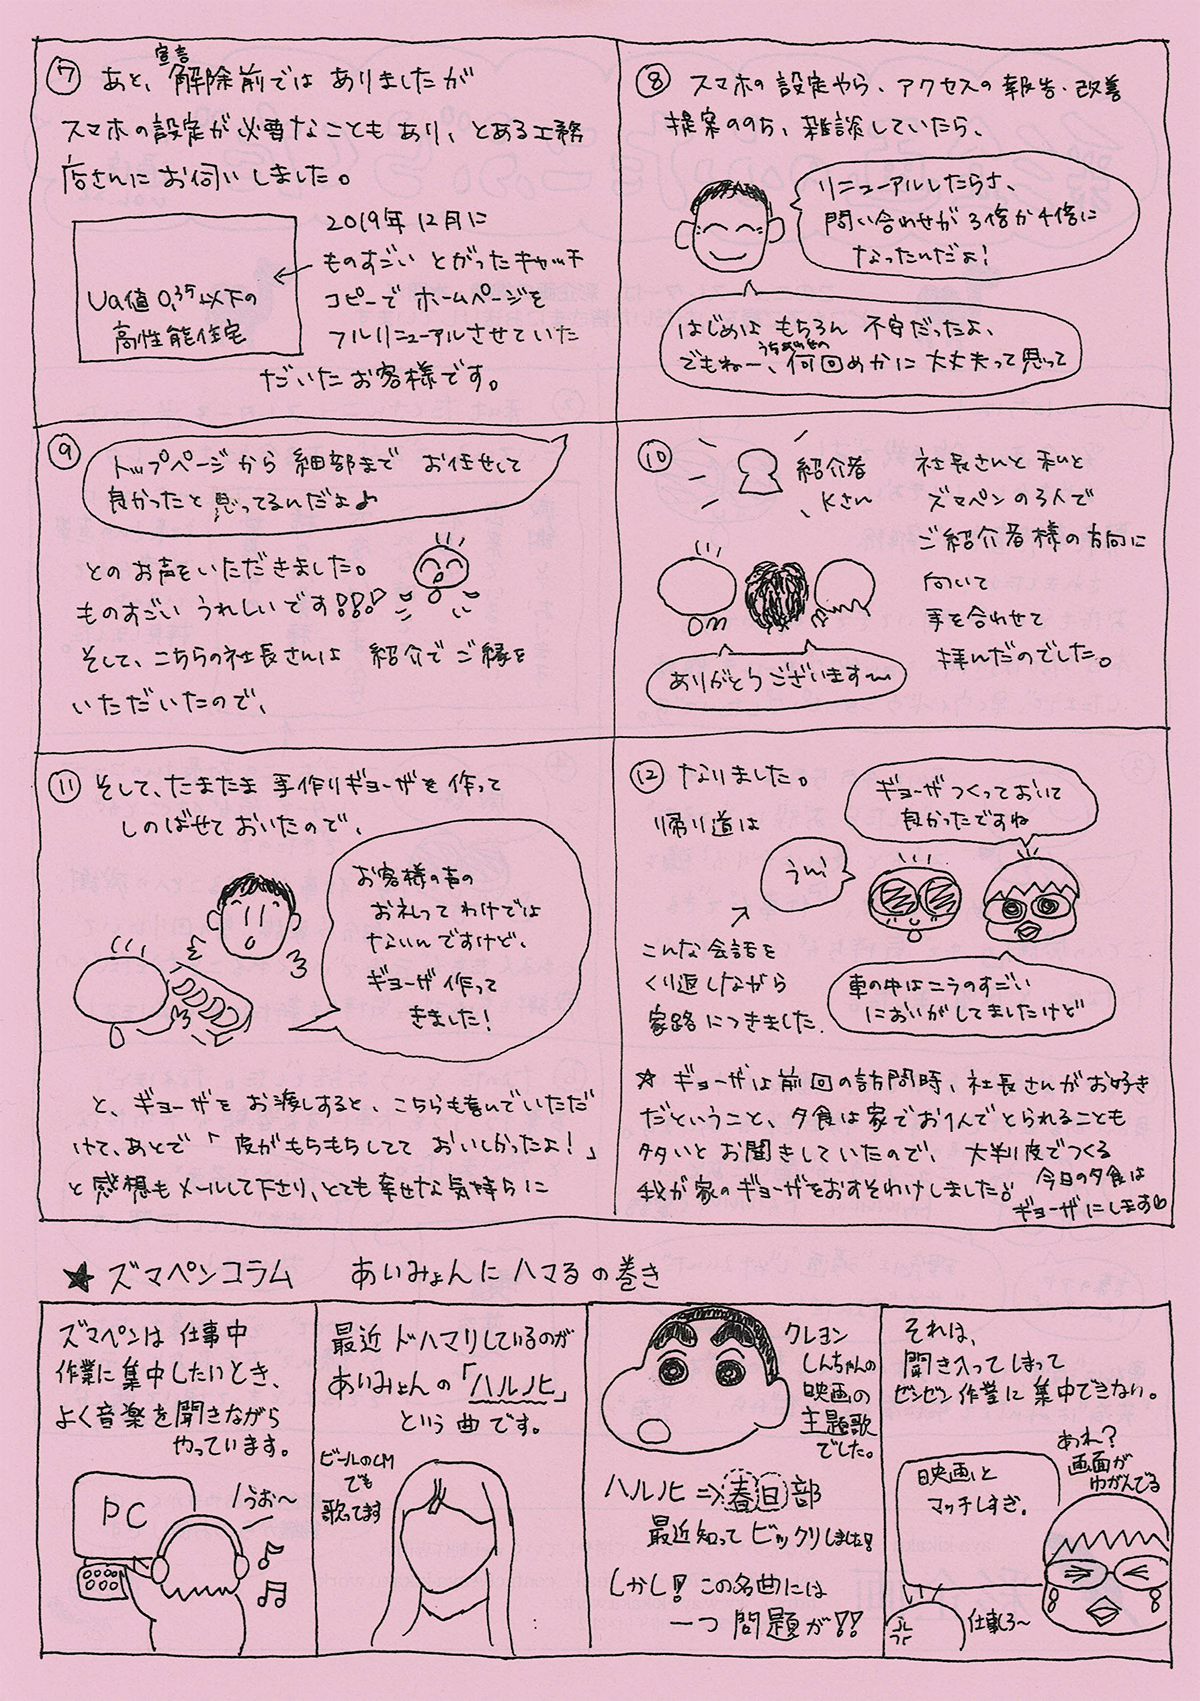 ⑦ あと、宣言解除前ではありましたが
スマホの設定が必要なこともあり、とある工務
店さんにお伺いしました。
Ua値 0.35以下の
高性能住宅
2019年12月に
ものすごい とがったキャッチ
コピーで ホームページを
フルリニューアルさせていた
だいたお客様です。
⑧ スマホの設定やら、アクセスの報告・改善
提案ののち、雑談していたら、
リニューアルしたらさ、
問い合わせが3倍か4倍に
なったんだよ!
はじめはもちろん 不安だったよ、
でもねー、うちあわせの何回めかに大丈夫って思って
⑨ トップページから細部まで お任せして
良かったと思ってるんだよ♪
とのお声をいただきました。
ものすごいうれしいです!!!
そして、こちらの社長さんは 紹介でご縁を
いただいたので、
⑩ 紹介者
Kさん
社長さんと私と
ズマペンの3人で
ご紹介者様の方向に
向いて
手を合わせて
拝んだのでした。
ありがとうございます〜
⑪ そして、たまたま手作りギョーザを作って
しのばせておいたので、
お客様の声の
お礼ってわけでは
ないんですけど、
ギョーザ作って
きました!
と、ギョーザをお渡しすると、こちらも喜んでいただ
けて、あとで「皮がもちもちしてて おいしかったよ!」
と感想もメールして下さり、とても幸せな気持ちに
⑫ なりました。
帰り道は
ギョーザつくっておいて
良かったですね
うん
こんな会話を
くり返しながら
家路につきました.
車の中はニラのすごい
においがしてましたけど
☆ ギョーザは前回の訪問時、社長さんがお好き
だということ、夕食は家でお1人でとられることも
多いとお聞きしていたので、大判皮でつくる
我が家のギョーザをおすそわけしました。
今日の夕食は
ギョーザにします♡
★ ズマペンコラム あいみょんにハマるの巻き
ズマペンは仕事中
作業に集中したいとき、
よく音楽を聞きながら
やっています。
PC
うお〜
最近ドハマりしているのが
あいみょんの「ハルノヒ」
という曲です。
ビールのCM
でも
歌ってます
クレヨン
しんちゃんの
映画の
主題歌
でした。
ハルノヒ⇒春日部
最近知ってビックリしました!
しかし!この名曲には
一つ問題が!!
それは、
聞き入ってしまって
ゼンゼン作業に集中できない。
映画と
マッチしすぎ。
あれ?
画面が
ゆがんでる
仕事しろ〜